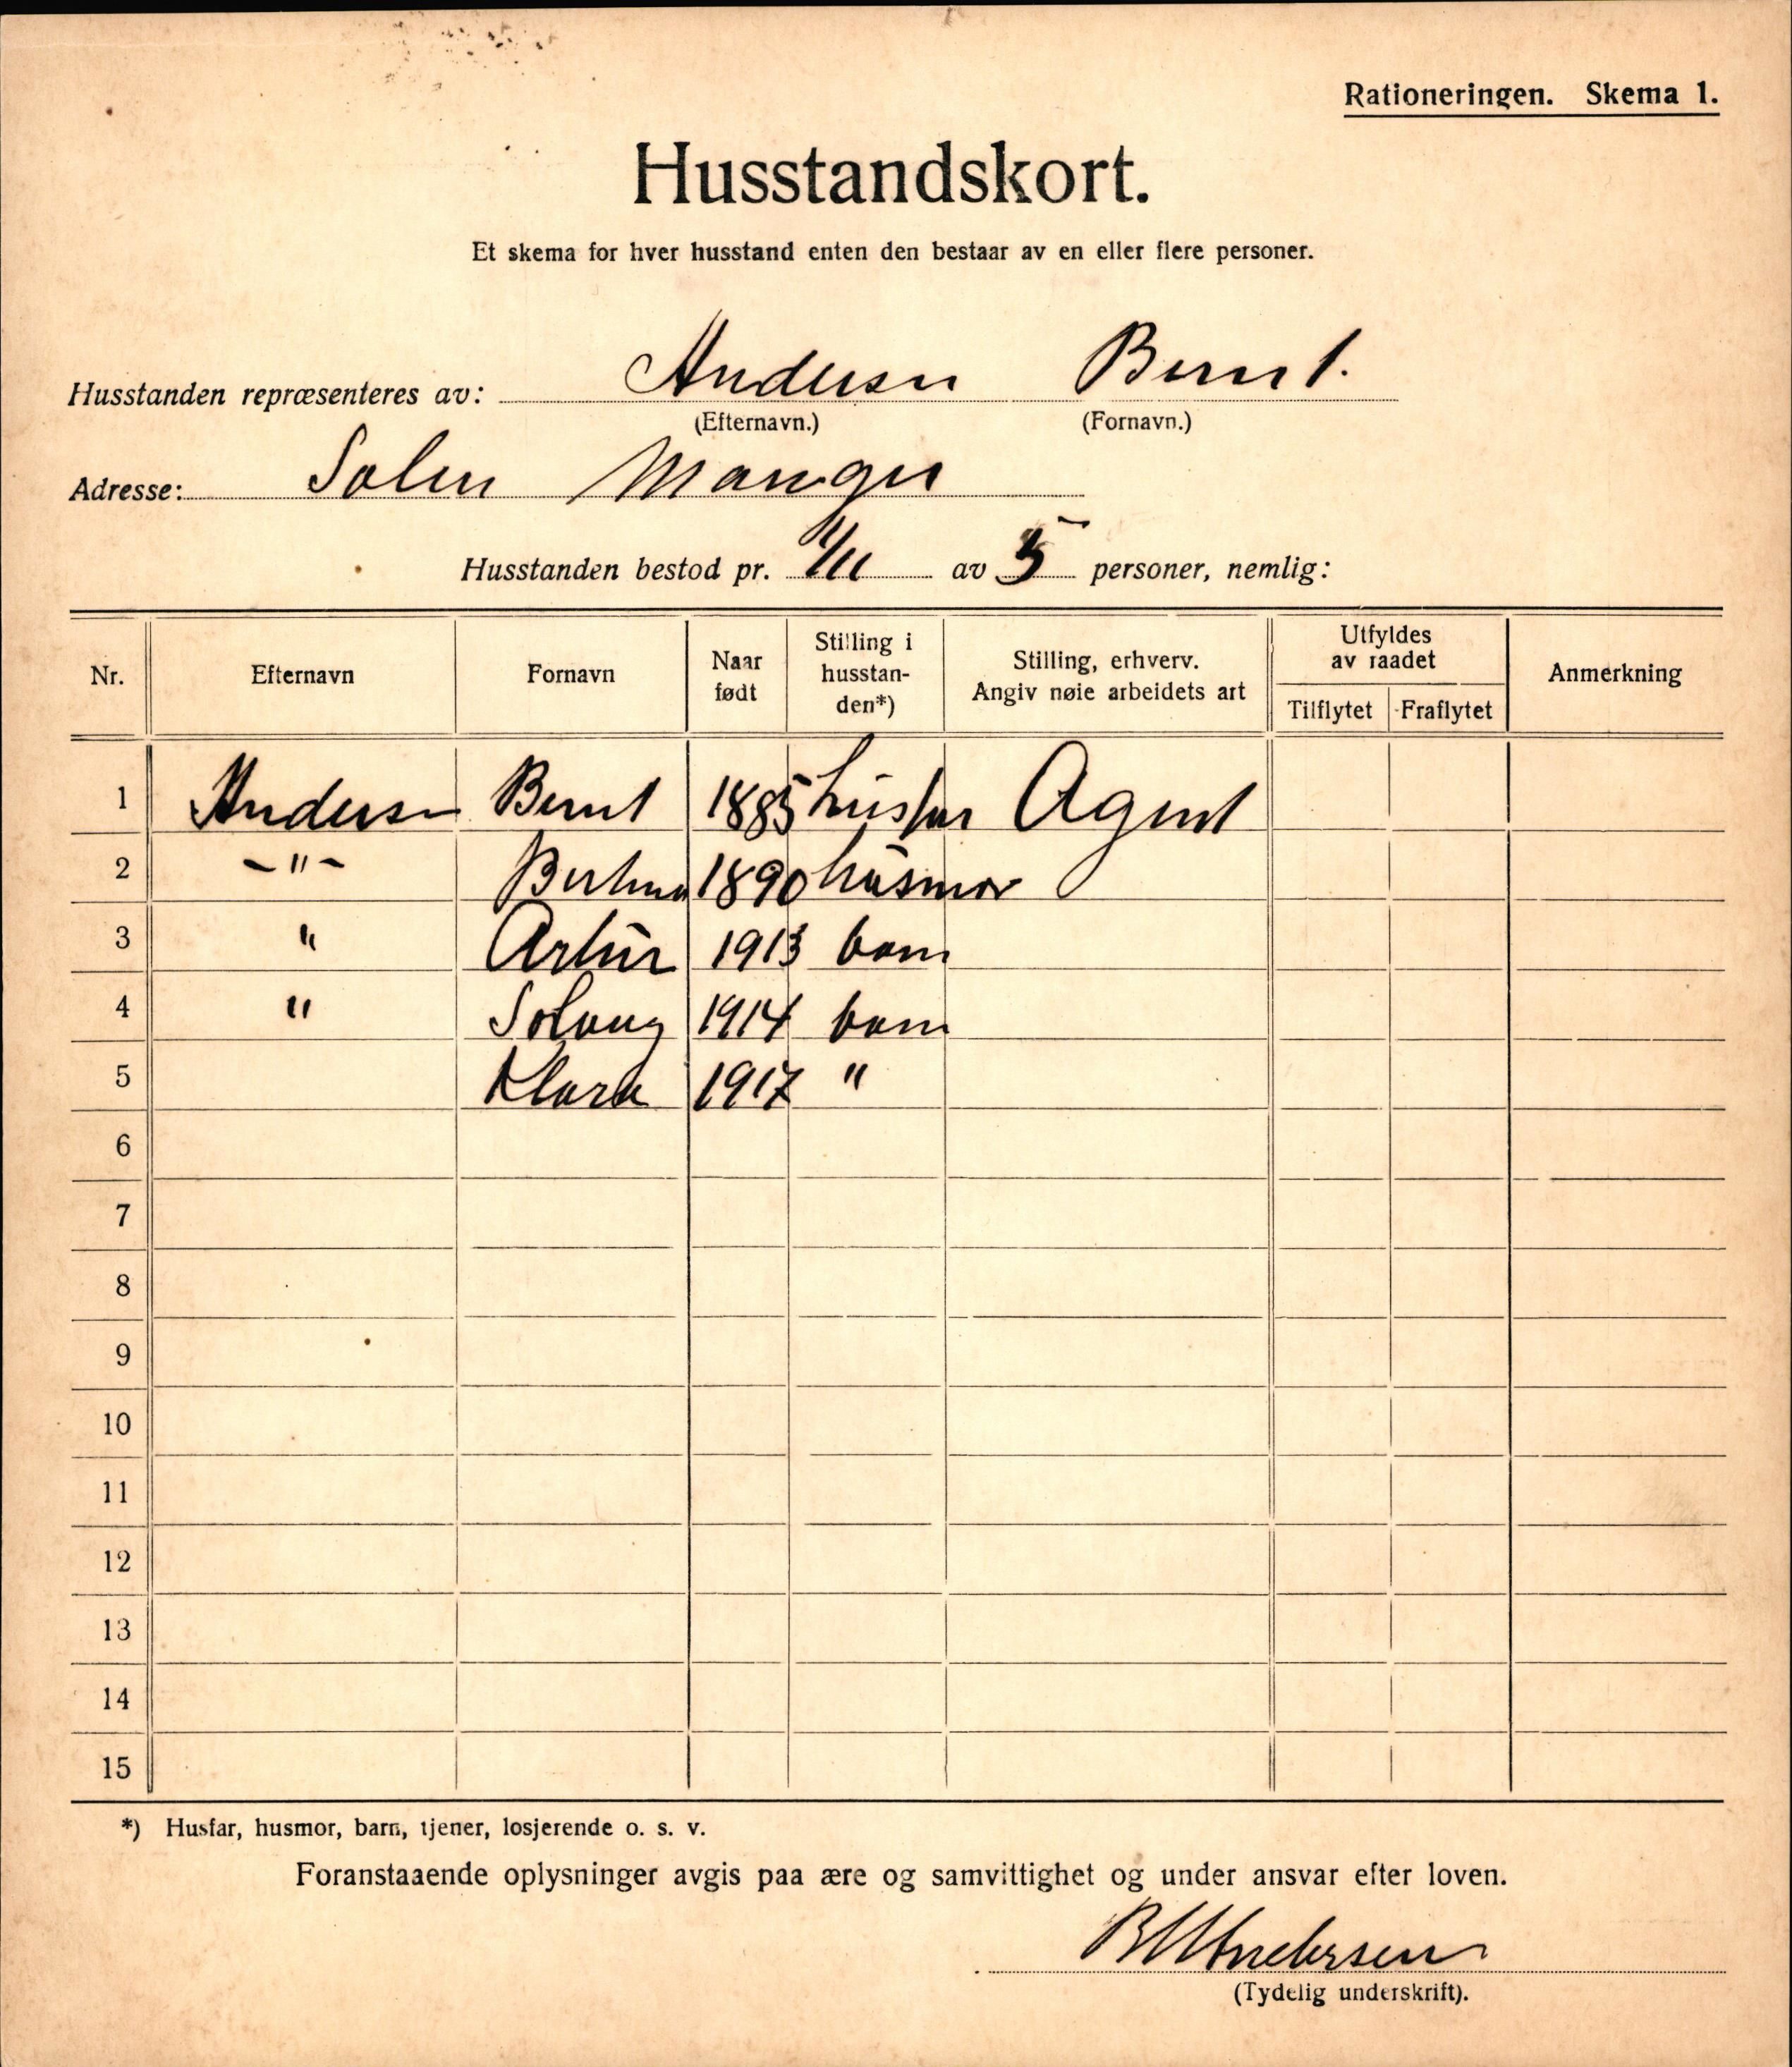 Rationeringen. Skema 1.
Husstandskort.
Et skema for hver husstand enten den bestaar av en eller flere personer.
Husstanden repræsenteres av: Andersen Bernt.
(Efternavn.) (Fornavn.)
Adresse: Solen Manger
Husstanden bestod pr. 1/11 av 5 personer, nemlig:
Nr. Efternavn Fornavn Naar født Stilling i husstan-den*) Stilling, erhverv. Angiv nøie arbeidets art Utfyldes av raadet Tilflytet Fraflytet Anmerkning
1 Andersen Bernt 1885 husfar Agent
2 -"- 1890 husmor
3 " Artur 1913 barn
4 " Solveig 1914 barn
5 Klara 1917 "
6
7
8
9
10
11
12
13
14
15
*) Husfar, husmor, barn, tjener, losjerende o. s. v.
Foranstaaende oplysninger avgis paa ære og samvittighet og under ansvar efter loven.
B Andersen
(Tydelig underskrift).